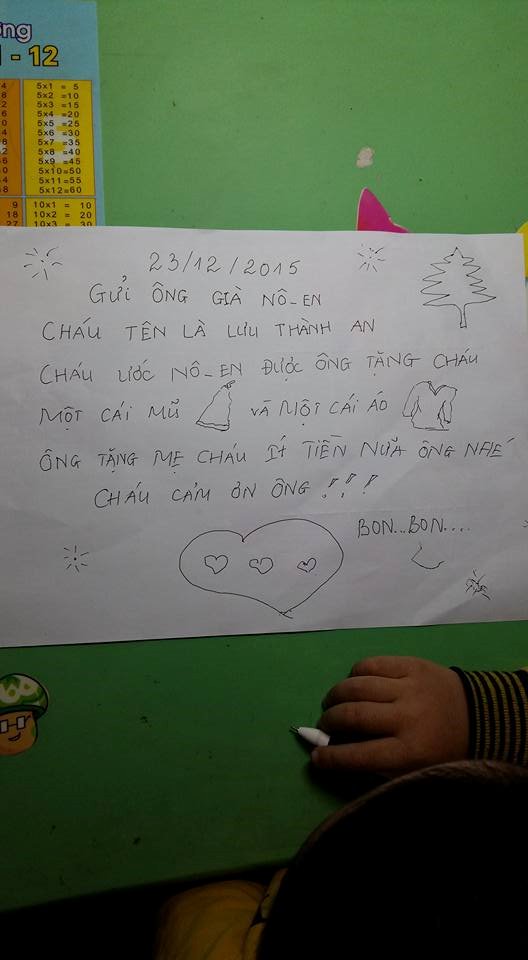 ng
1 - 12
5x1 = 5
5x2 =10
5x3 =15
5x4 =20
5x5 =25
5x6 =30
5x7 =35
5x8 =40
5x9 =45
5x10=50
5x11=55
5x12=60
9
18
27
10x1 = 10
10x2 = 20
10x3 = 30
23/12/2015
GỬI ÔNG GIÀ NÔ-EN
CHÁU TÊN LÀ LƯU THÀNH AN
CHÁU ƯỚC NÔ-EN ĐƯỢC ÔNG TẶNG CHÁU
MỘT CÁI MŨ VÀ MỘT CÁI ÁO
ÔNG TẶNG MẸ CHÁU ÍT TIỀN NỮA ÔNG NHÉ
CHÁU CẢM ƠN ÔNG !!!
BON...BON....